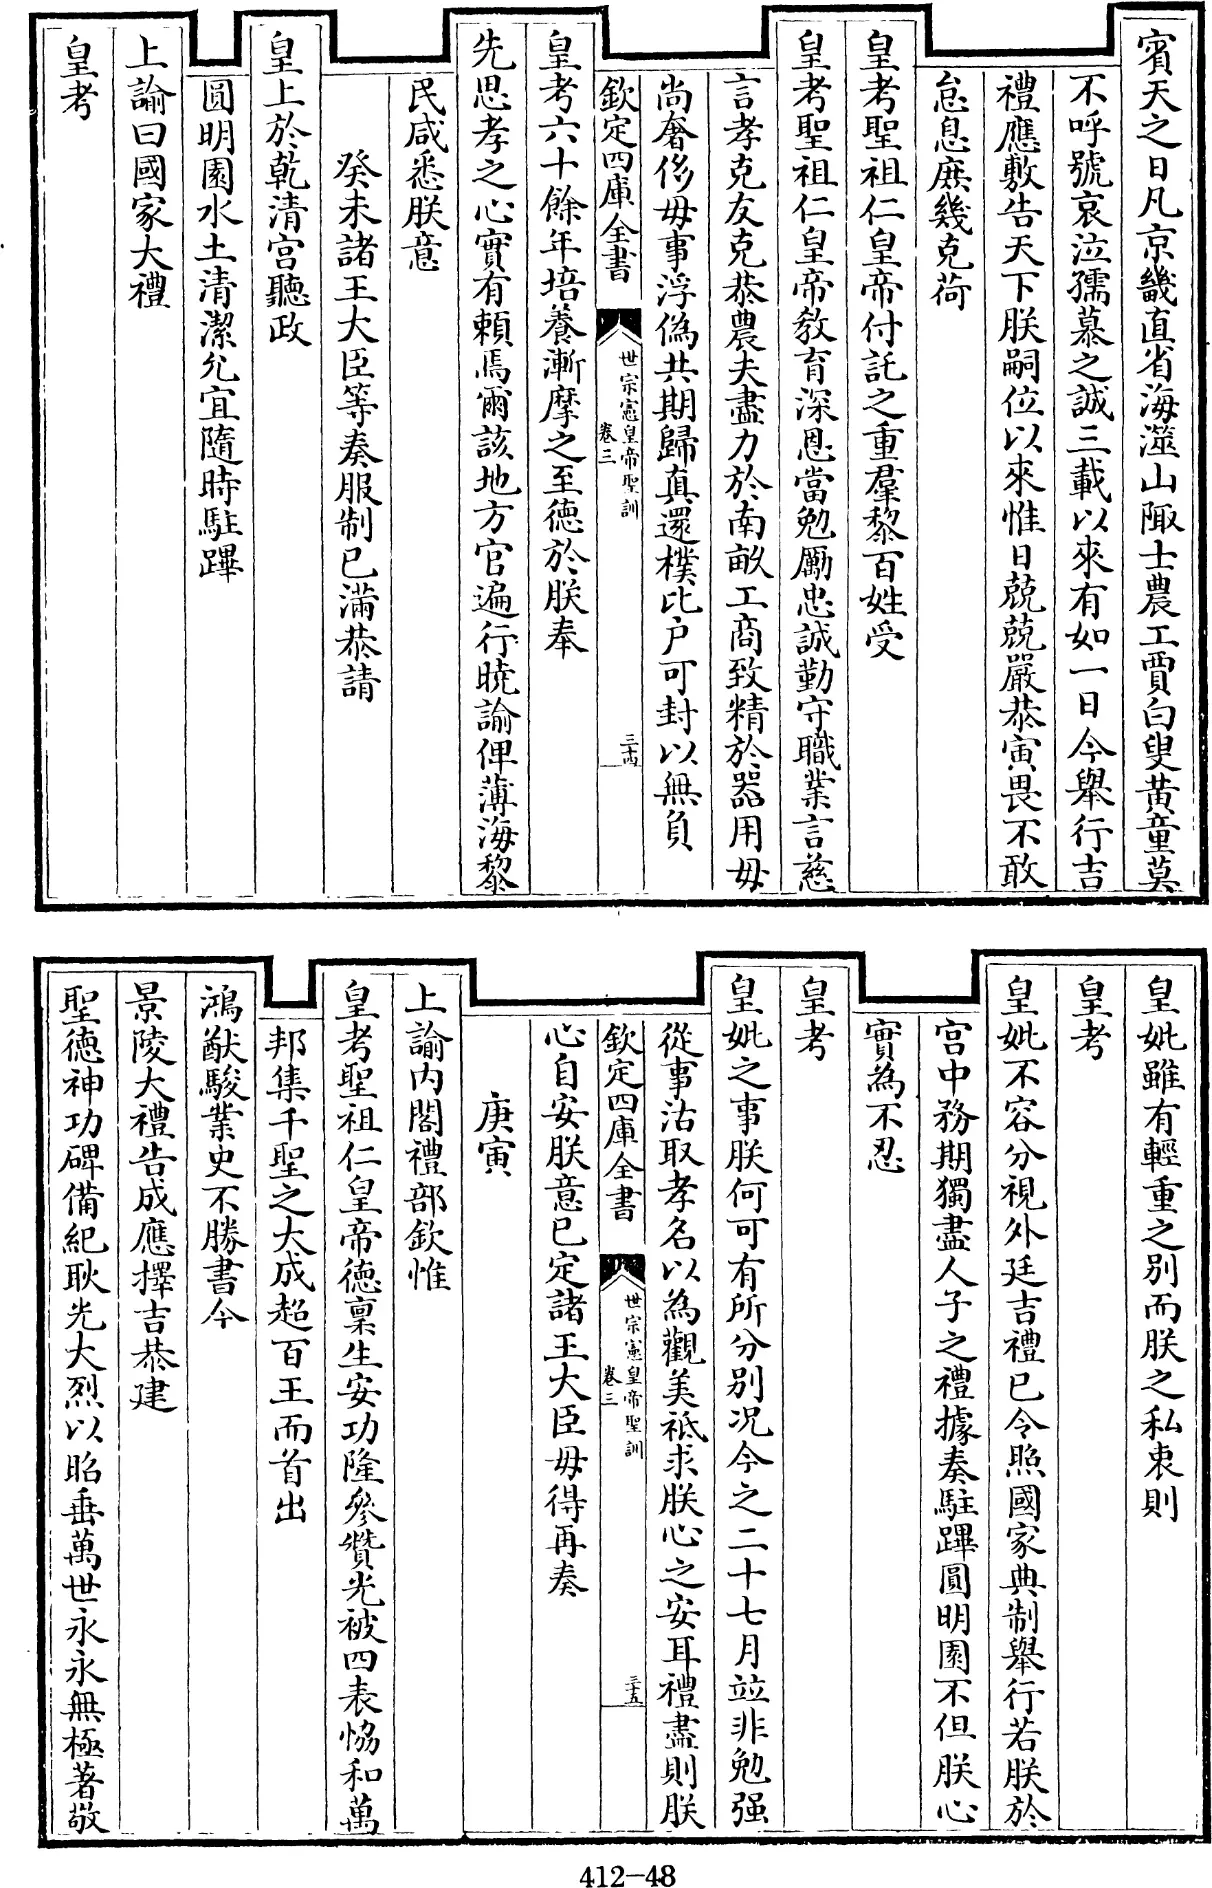 賓天之日凡京畿直省海澨山陬士農工賈白叟黃童莫
不呼號哀泣孺慕之誠三載以來有如一日今舉行吉
禮應敷告天下朕嗣位以來惟日兢兢嚴恭寅畏不敢
怠息庶幾克荷
皇考聖祖仁皇帝付託之重羣黎百姓受
皇考聖祖仁皇帝教育深恩當勉勵忠誠勤守職業言慈
言孝克友克恭農夫盡力於南畝工商致精於器用毋
尚奢侈毋事浮偽共期歸真還樸比户可封以無負
欽定四庫全書
世宗憲皇帝聖訓
卷三
三十四
皇考六十餘年培養漸摩之至德於朕奉
先思孝之心實有賴焉爾該地方官遍行曉諭俾薄海黎
民咸悉朕意
癸未諸王大臣等奏服制已滿恭請
皇上於乾清宮聽政
圓明園水土清潔允宜隨時駐蹕
上諭曰國家大禮
皇考
皇妣雖有輕重之別而朕之私衷則
皇考
皇妣不容分視外廷吉禮已令照國家典制舉行若朕於
宮中務期獨盡人子之禮據奏駐蹕圓明園不但朕心
實為不忍
皇考
皇妣之事朕何可有所分別况今之二十七月竝非勉强
從事沽取孝名以為觀美祗求朕心之安耳禮盡則朕
欽定四庫全書
世宗憲皇帝聖訓
卷三
三十五
心自安朕意已定諸王大臣毋得再奏
庚寅
上諭內閣禮部欽惟
皇考聖祖仁皇帝德禀生安功隆參贊光被四表恊和萬
邦集千聖之大成超百王而首出
鴻猷駿業史不勝書今
景陵大禮告成應擇吉恭建
聖德神功碑備紀耿光大烈以昭垂萬世永永無極著敬
412-48